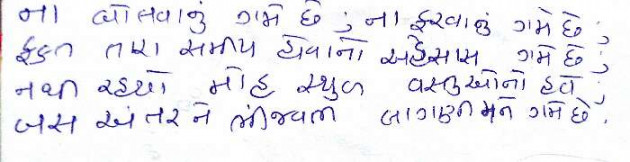 ના બોલવાનું ગમે છે; ના ફરવાનું ગમે છે;
ફક્ત તારા સમીપ હોવાનો અહેસાસ ગમે છે;
નથી રહ્યો મોહ સ્થુળ વસ્તુઓનો હવે;
બસ અંતરને ભીંજવતી લાગણી મને ગમે છે.